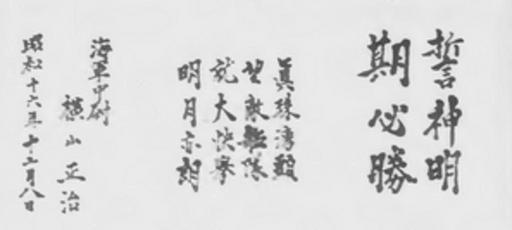 誓神明
期必勝
眞珠湾
望敵艦隊
就大快挙
明月亦朗
海軍中尉
横山正治
昭和十六年十二月八日